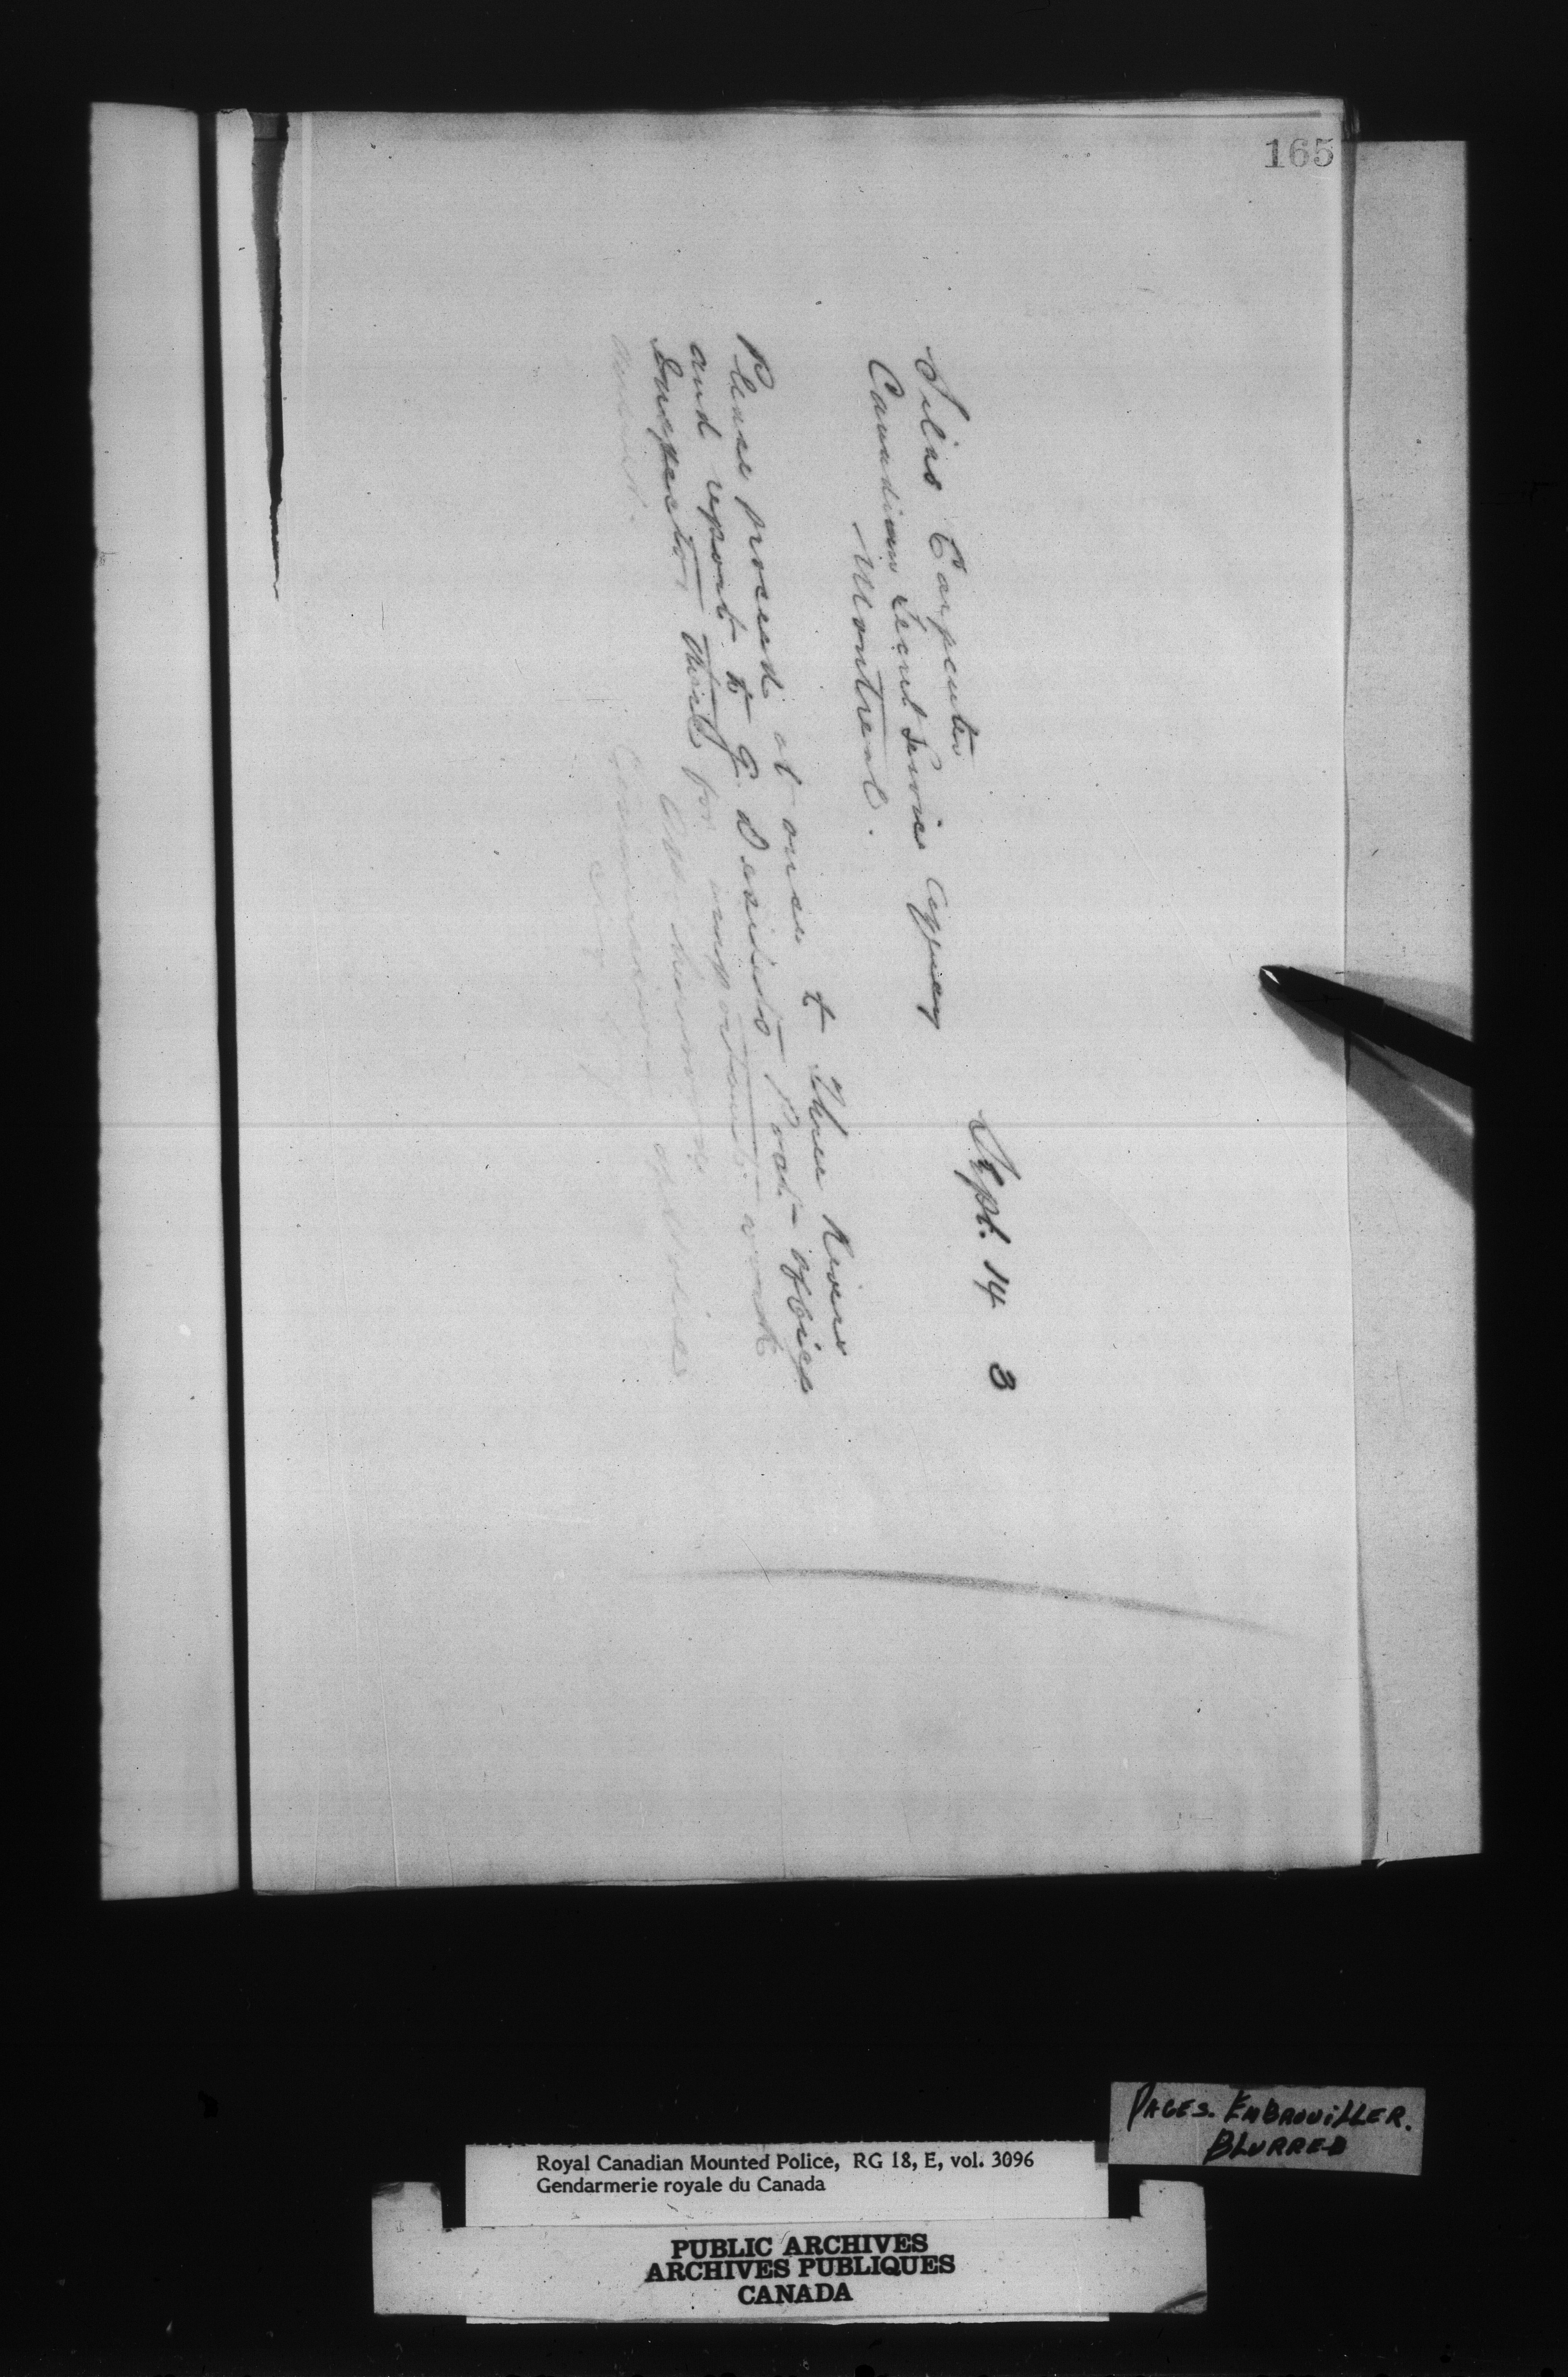 165
Sept. 14 3
Silas Carpenter
Canadian Secret Service Agency
Montreal.
Please proceed at once to Three Rivers
and report to G. Desilets Post-office
Inspector there for important work
answer.
A.P. Sherwood
Commissioner of Police
PAGES. EMBROUILLER.
BLURRED
Royal Canadian Mounted Police, RG 18, E, vol. 3096
Gendarmerie royale du Canada
PUBLIC ARCHIVES
ARCHIVES PUBLIQUES
CANADA